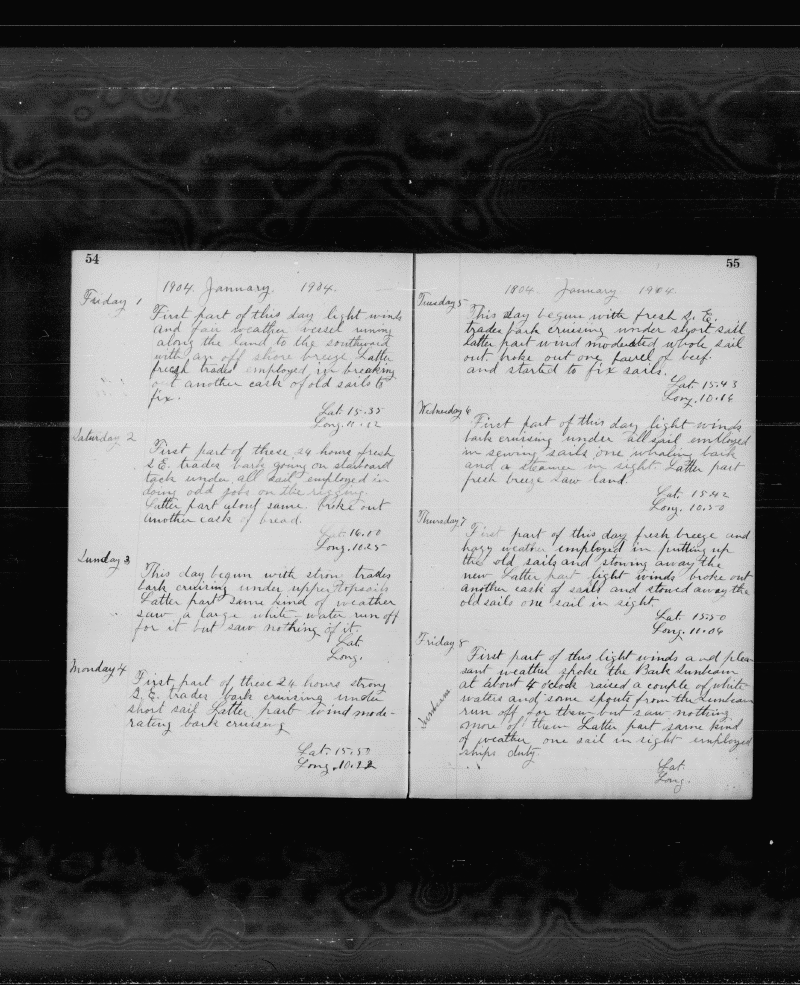 54
1904 January 1904.
Friday 1
First part of this day light winds
and fair weather vessel runing
along the land to the southward
with an off shore breeze Latter
fresh trades employed in breaking
out another cask of old sails to
fix.
Lat. 15-35
Long. 11-12
Saturday 2
First part of these 24 hours fresh
S.E. trades bark going on starboard
tack under all sail employed in
doing odd jobs on the rigging.
Latter part about same broke out
another cask of bread.
Lat. 16.10
Long. 10.25
Sunday 3
This day begun with stron trades
bark cruising under upper topsails
Latter part same kind of weather
saw a large white-water run off
for it but saw nothing of it.
Lat.
Long.
Monday 4
First part of these 24 hours strong
S.E. trades bark cruising under
short sail Latter part wind mode-
rating bark cruising
Lat. 15-50
Long. 10.22
55
1804. January 1904.
Tuesday 5
This day begun with fresh S.E.
trades bark cruising under short sail
Latter part wind moderated whole sail
out broke out one barel of beef.
and started to fix sails.
Lat. 15-43
Long. 10-16
Wednesday 6
First part of this day light winds
bark cruising under all sail employed
in sewing sails one whaling bark
and a steamer in sight Latter part
fresh breeze saw land.
Lat. 15.42
Long. 10-50
Thursday 7
First part of this day fresh breeze and
hazy weather employed in putting up
the old sails and stowing away the
new Latter part light winds broke out
another cask of sails and stowed away the
old sails one sail in sight
Lat. 15-50
Long. 11-04
Friday 8
First part of this light winds and plea-
sant weather spoke the Bark Sunbeam
at about 4 oclock raised a couple of white
waters and some spouts from the Sunbeam
run off for them but saw nothing
more of them Latter part same kind
of weather one sail in sight employed
ships duty.
Sunbeam
Lat.
Long.